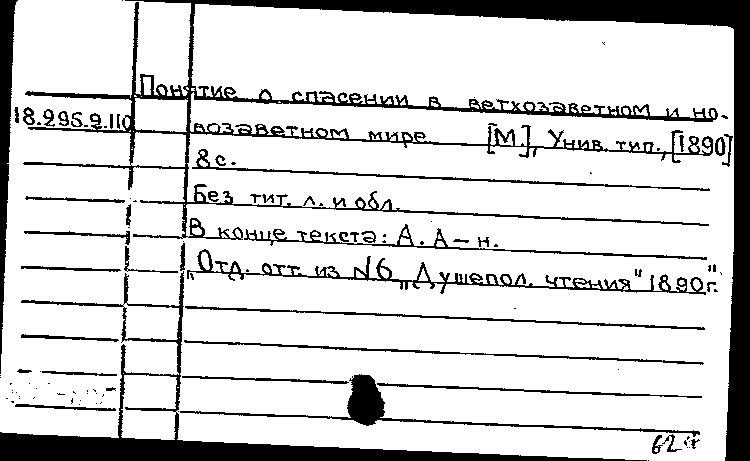 Понятие о спасении в ветхозаветном и но-
18.295.9.110 возаветном мире [М.], Унив. тип., [1890]
8 с.
Без тит. л. и обл.
В конце текста: А. А – н.
„Отд. отт. из №6 „Душепол. чтения" 1890 г."
62